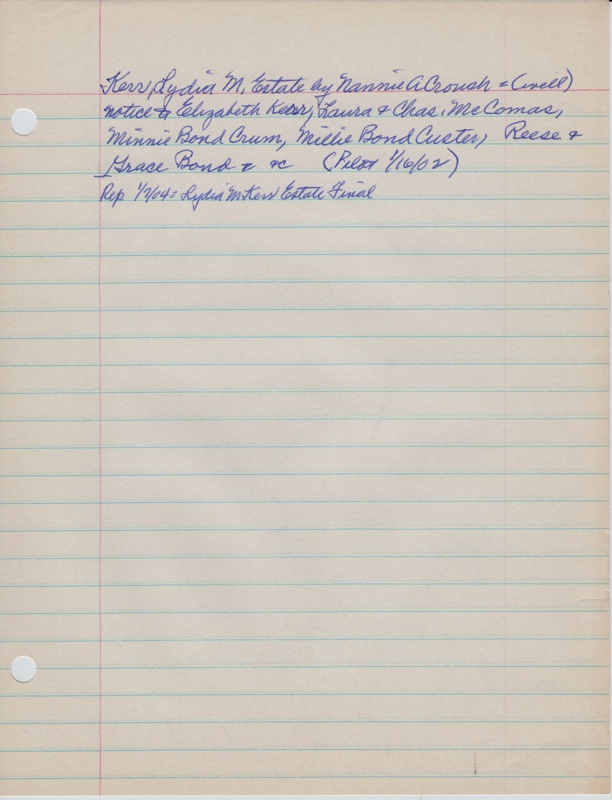 Kerr, Lydia M. Estate by Nannie A Crouch & (will)
notice to Elizabeth Kerr, Laura & Chas. McComas,
Minnie Bond Crum, Millie Bond Custer, Reese &
Grace Bond & &c (Pilot 1/16/02)
Rep 1/7/04 = Lydia M Kerr Estate Final